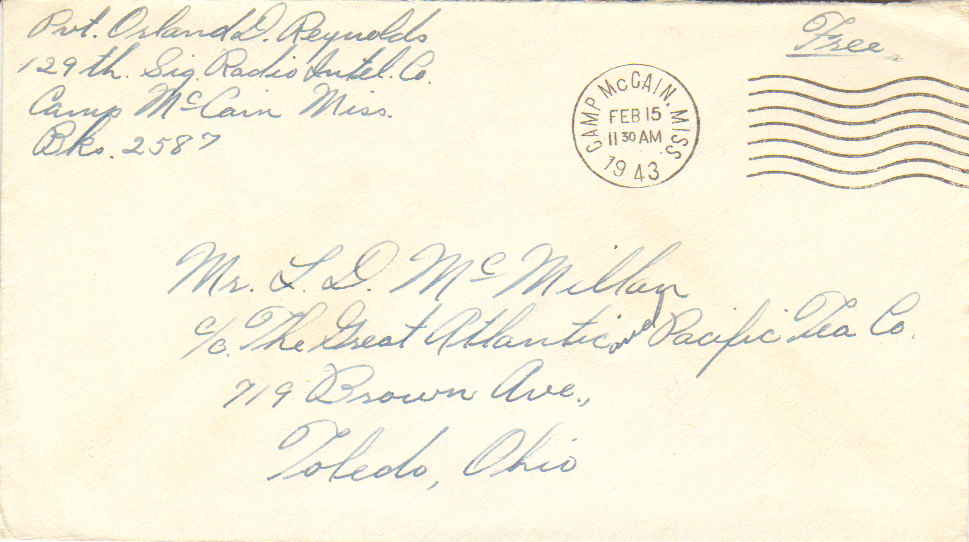 Pvt. Orland D. Reynolds
129th. Sig. Radio Intel. Co.
Camp McCain Miss.
Bks. 2587
Free
CAMP McCAIN, MISS
FEB 15
11 30 AM
1943
Mr. L. D. McMillan
c/o. The Great Atlantic and Pacific Tea Co.
719 Brown Ave.,
Toledo, Ohio